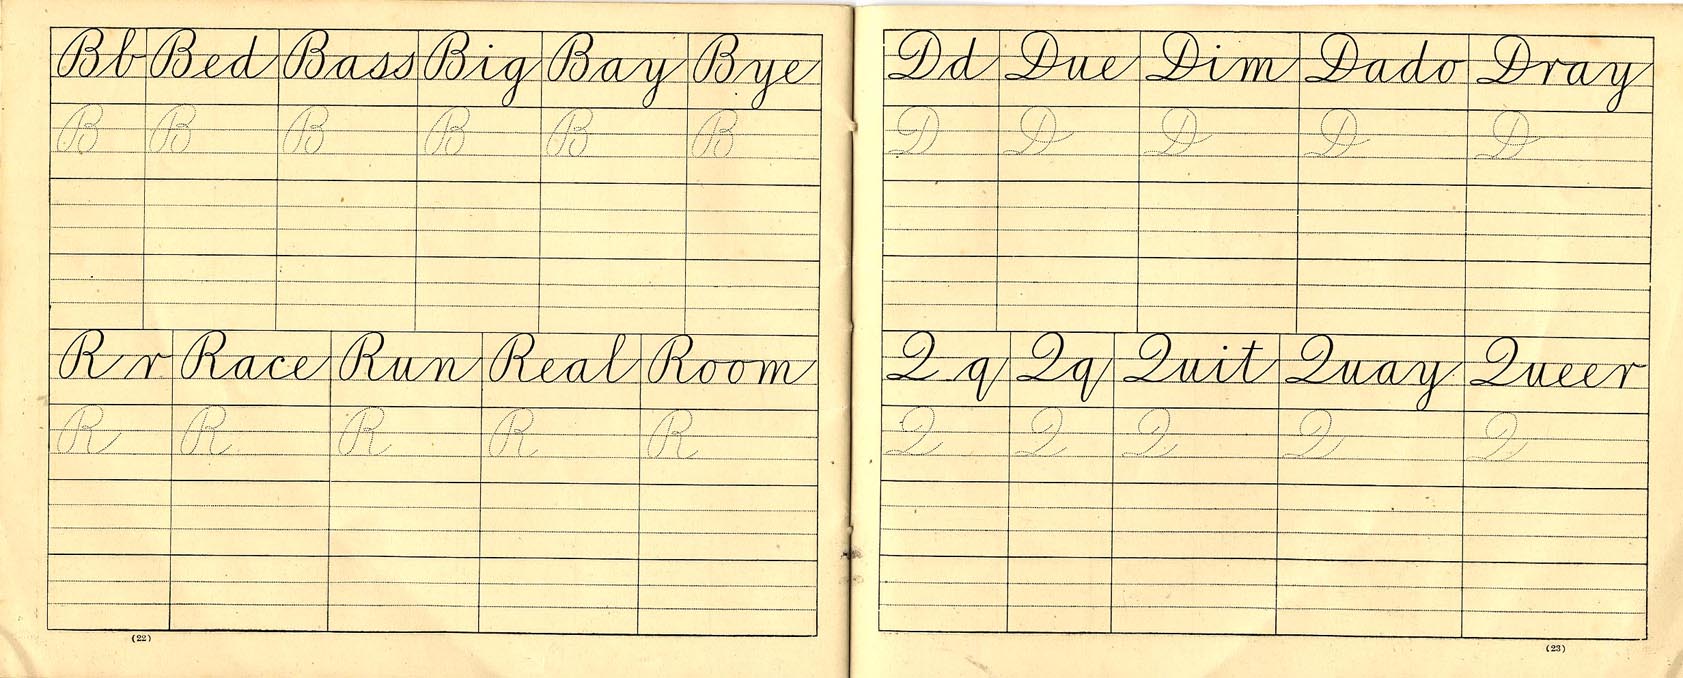 Bb Bed Bass Big Bay Bye
B B B B B B
R r Race Run Real Room
R R R R R
(22)
Dd Due Dim Dado Dray
D D D D D
Q q Qq Quit Quay Queer
Q Q Q Q Q
(23)